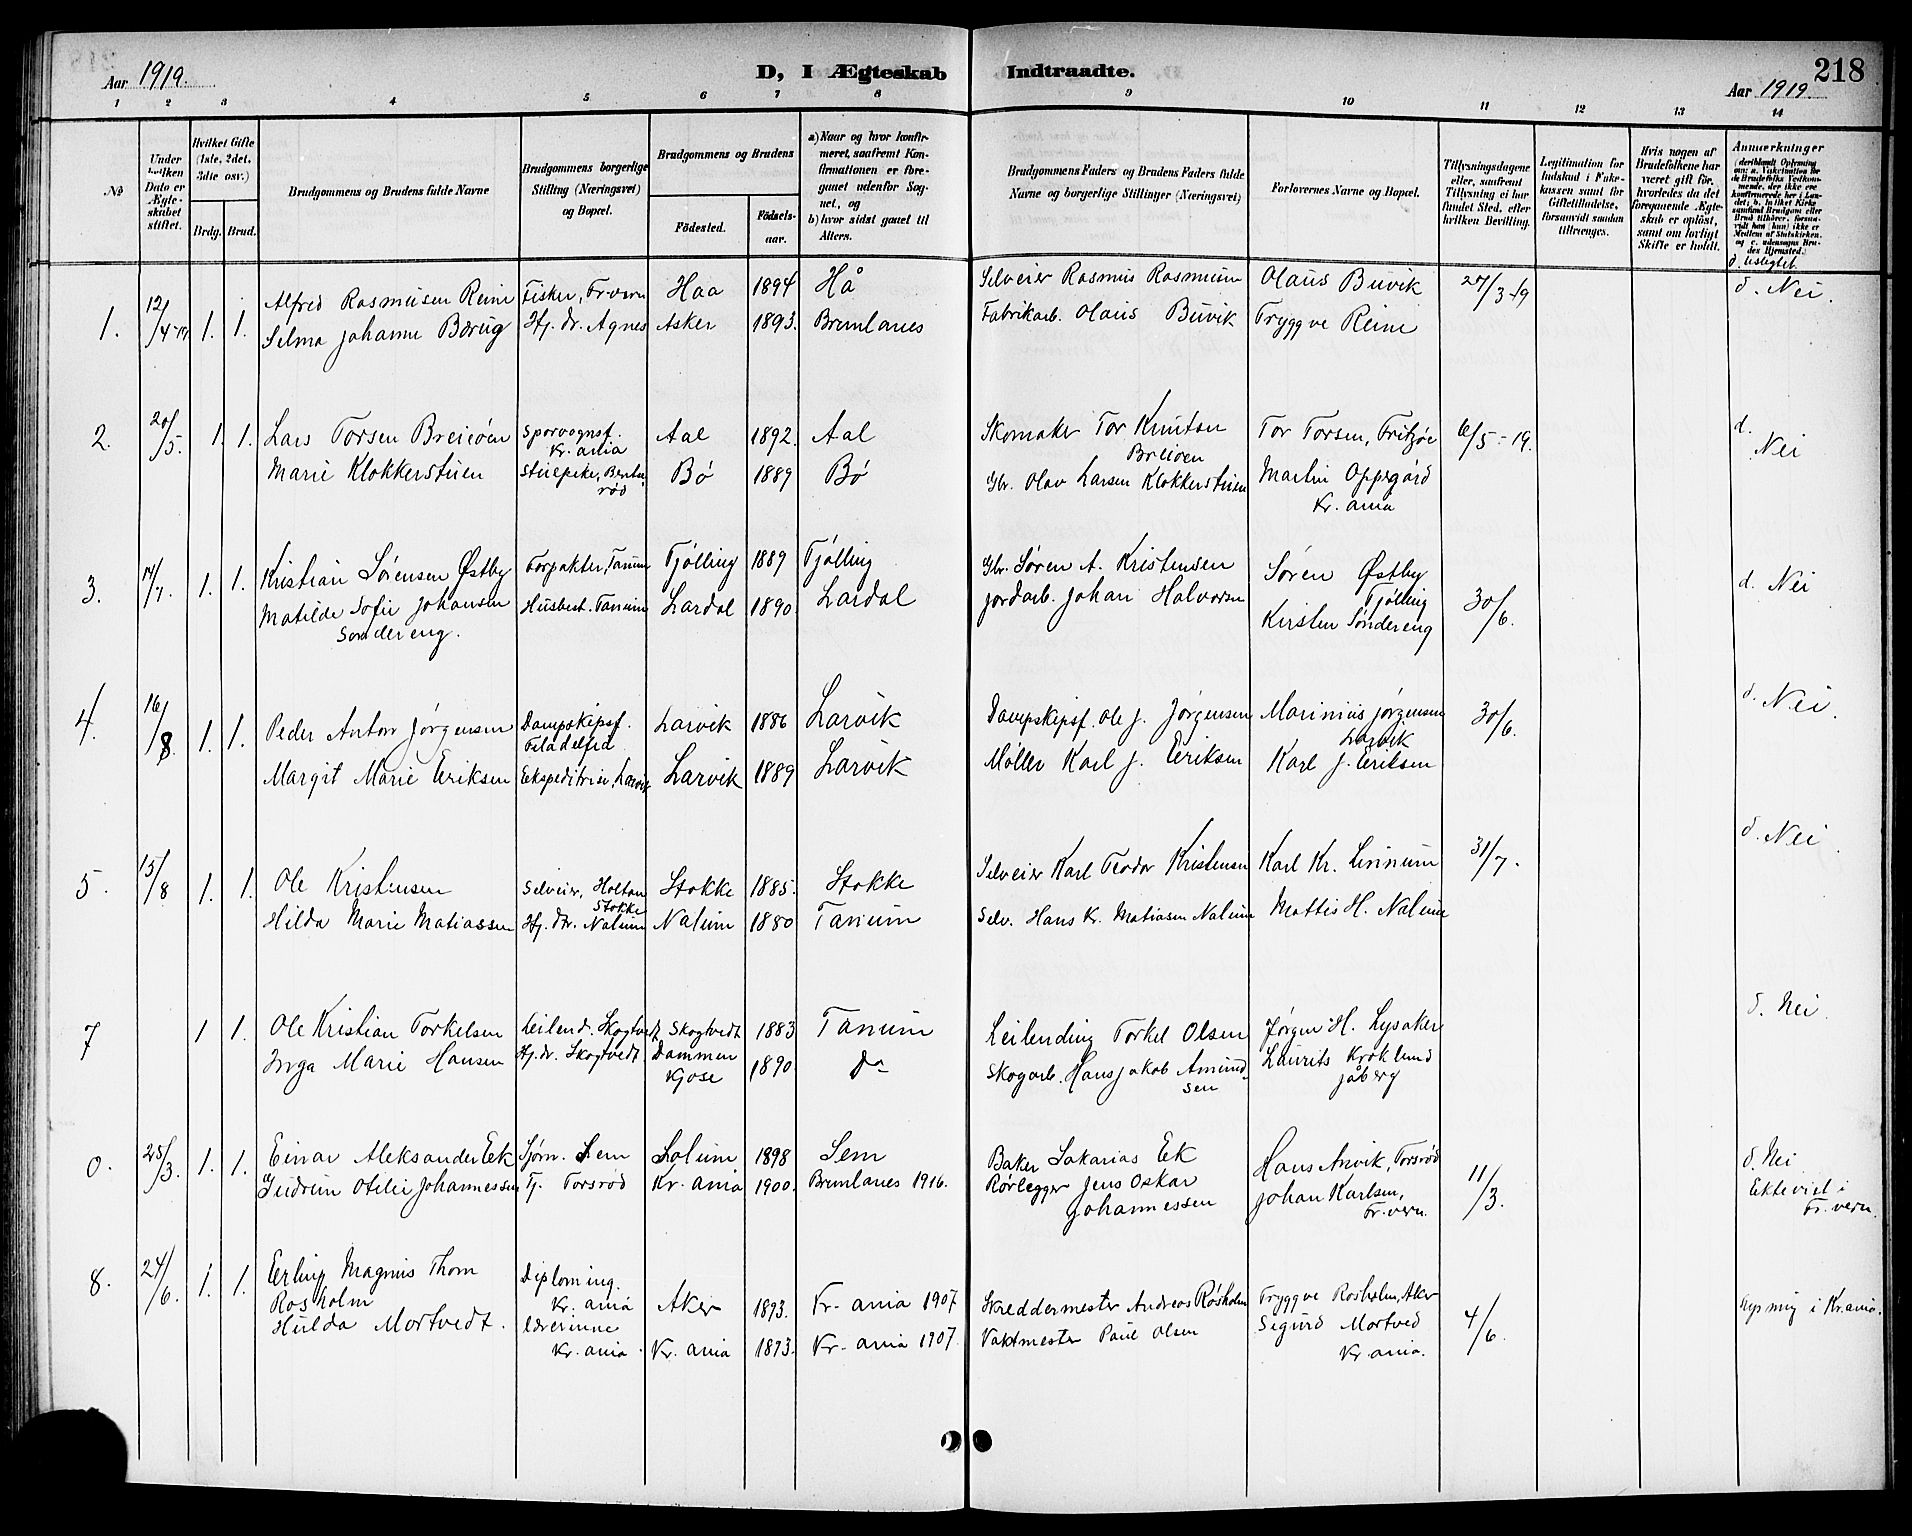 Aar 1919. D, I Ægteskab Indtraadte. 218
Aar 1919.
1 2 3 4 5 6 7 8 9 10 11 12 13 14
No
Under hvilken Dato er Ægteskabet stiftet.
Hvilket Gifte (1ste, 2det, 3die osv.)
Brdg. Brud.
Brudgommens og Brudens fulde Navne
Brudgommens borgerlige Stilling (Næringsvei) og Bopæl.
Brudgommens og Brudens
Födested.
Födsels-aar.
a) Naar og hvor konfirmeret, saafremt Konfirmationen er foregaaet udenfor Sognet, og
b) hvor sidst gaaet til Alters.
Brudgommens Faders og Brudens Faders fulde Navne og borgerlige Stillinger (Næringsvei)
Forlovernes Navne og Bopæl.
Tillysningsdagene eller, saafremt Tillysning ei har fundet Sted, efter hvilken Bevilling.
Legitimation for Indskud i Enkekassen samt for Giftetilladelse, forsaavidt saadan tiltrænges.
Hvis nogen af Brudefolkene har været gift før, hvorledes da det foregaaende Ægteskab er opløst, samt om lovligt Skifte er holdt.
Anmerkninger
d. uslegtet.
1. 12/4-19 1. 1. Alfred Rasmusen Reine Fisker, Fr.værn Haa 1894 Hå Selveier Rasmus Rasmusen Olaus Buvik 27/3-19 d. Nei.
Selma Johanne Bærug Hj. dr. Agnes Asker 1893. Brunlanes Fabrikarb. Olaus Buvik Tryggve Reine
2. 20/5. 1. 1. Lars Torsen Breieøen Sporvognsf. Kr.ania Aal 1892. Aal Skomaker Tor Knutsen Breioen Tor Torsen, Fritzöe 6/5-19. d. Nei
Marie Klokkerstuen Stuepike, Bentsrød Bö 1889 Bö Gbr. Olav Larsen Klokkerstuen Martin Oppegård Kr. ania
3. 14/7. 1. 1. Kristian Sørensen Østby Forpakter, Tanum Tjølling 1889 Tjølling Gbr. Søren A. Kristensen Søren Østby Tjølling 30/6. d. Nei
Matilde Sofie Johansen Søndereng. Husbest. Tanum Lardal 1890. Lardal Jordarb. Johan Halvorsen Kirsten Søndereng
4. 16/8. 1. 1. Peder Anton Jørgensen Dampskipsf. Filadelfia Larvik 1886 Larvik Dampskipsf. Ole J. Jørgensen Marinius Jørgensen Larvik 30/6. d. Nei.
Margit Marie Eriksen Ekspeditrise, Larvik Larvik 1889 Larvik Møller Karl J. Eriksen Karl J. Eriksen
5. 15/8 1. 1. Ole Kristensen Selveier, Holtan Stokke Stokke 1885. Stokke Selveier Karl Teodor Kristensen Karl Kr. Linnum 31/7. d. Nei.
Hilda Marie Matiassen Hj. dtr. Nalum Nalum 1880 Tanum Selv. Hans Kr. Matiasen Nalum Mattis H. Nalum
7 1 1. Ole Kristian Torkelsen Leilend. Skogtvedt Skogtvedt 1883 Tanum Leilending Torkel Olsen Jørgen H. Lysaker d. Nei.
Inga Marie Hansen Hj. dr. Skogtvedt Dammen Kjose 1890. Do Skogarb. Hans Jakob Amundsen Laurits Kroklund Jåberg
0. 25/3. 1. 1. Einar Aleksander Eek Sjøm. Sem Solum 1898 Sem Baker Sakarias Eek Hans Anvik, Torsrød 11/3. d. Nei
Gudrun Otelie Johannessen Tj. Torsrød Kr. ania 1900. Brunlanes 1916. Rørlegger Jens Oskar Johannessen Johan Karlsen, Fr.vern. Ektevied i Fr.vern.
8. 24/6. 1. 1. Erling Magnus Thom Rosholm Diploming. Kr. ania Aker 1893. Kr. ania 1907 Skreddermester Andreas Rosholm Tryggve Rosholm, Aker 4/6. Lysning i Kr.ania.
Hulda Mortvedt. Lærerinne Kr. ania. Kr. ania 1893. Kr. ania 1907. Vaktmester Paul Olsen Sigurd Mortved Kr. ania.